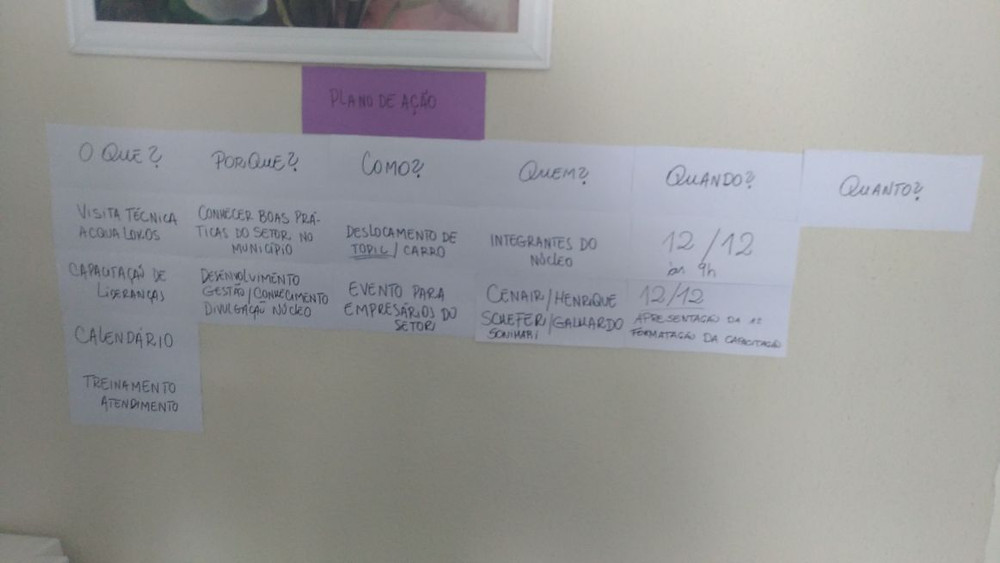 PLANO DE AÇÃO
O QUE?
PORQUE?
COMO?
QUEM?
QUANDO?
QUANTO?
VISITA TÉCNICA
ACQUA LOKOS
CONHECER BOAS PRÁ-
TICAS DO SETOR NO
MUNICÍPIO
DESLOCAMENTO DE
TOPIC/CARRO
INTEGRANTES DO
NÚCLEO
12/12
às 9h
CAPACITAÇÃO DE
LIDERANÇAS
DESENVOLVIMENTO
GESTÃO/CONHECIMENTO
DIVULGAÇÃO NÚCLEO
EVENTO PARA
EMPRESÁRIOS DO
SETOR
CENAIR/HENRIQUE
SCHEFER/GALHARDO
SONIMARI
12/12
APRESENTAÇÃO DA 1ª
FORMATAÇÃO DA CAPACITAÇÃO
CALENDÁRIO
TREINAMENTO
ATENDIMENTO